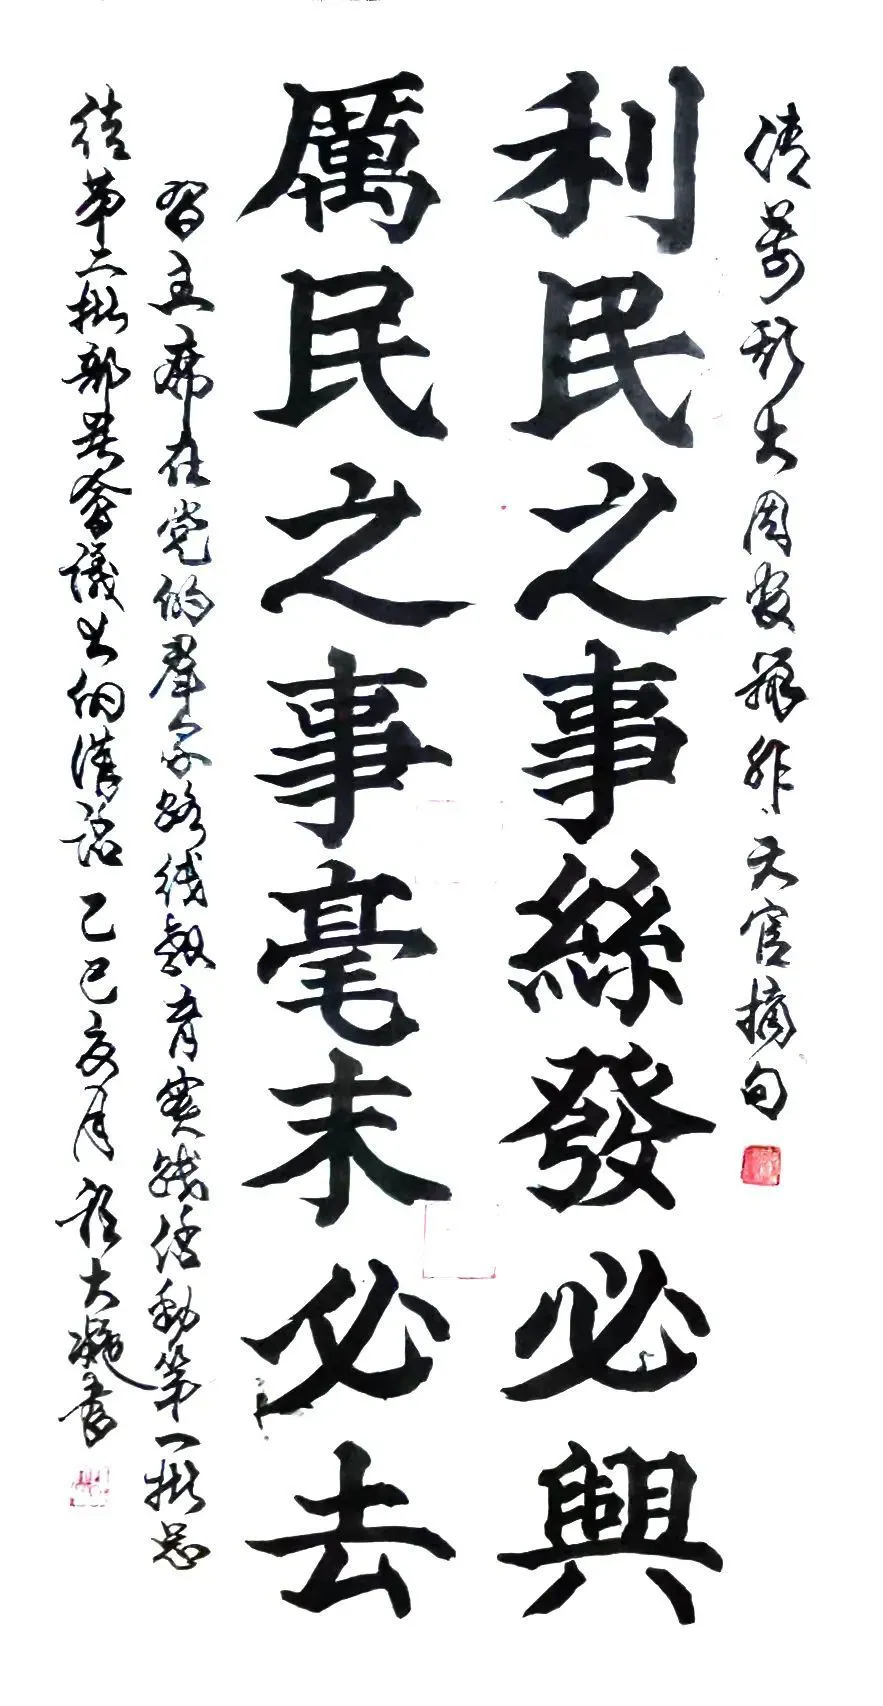 清萬斯大周官辨非天官摘句
利民之事絲發必興
厲民之事毫末必去
習主席在党的羣众路线教育實践活動第一批总
结第二批部署會議上的講話乙巳亥月程大書